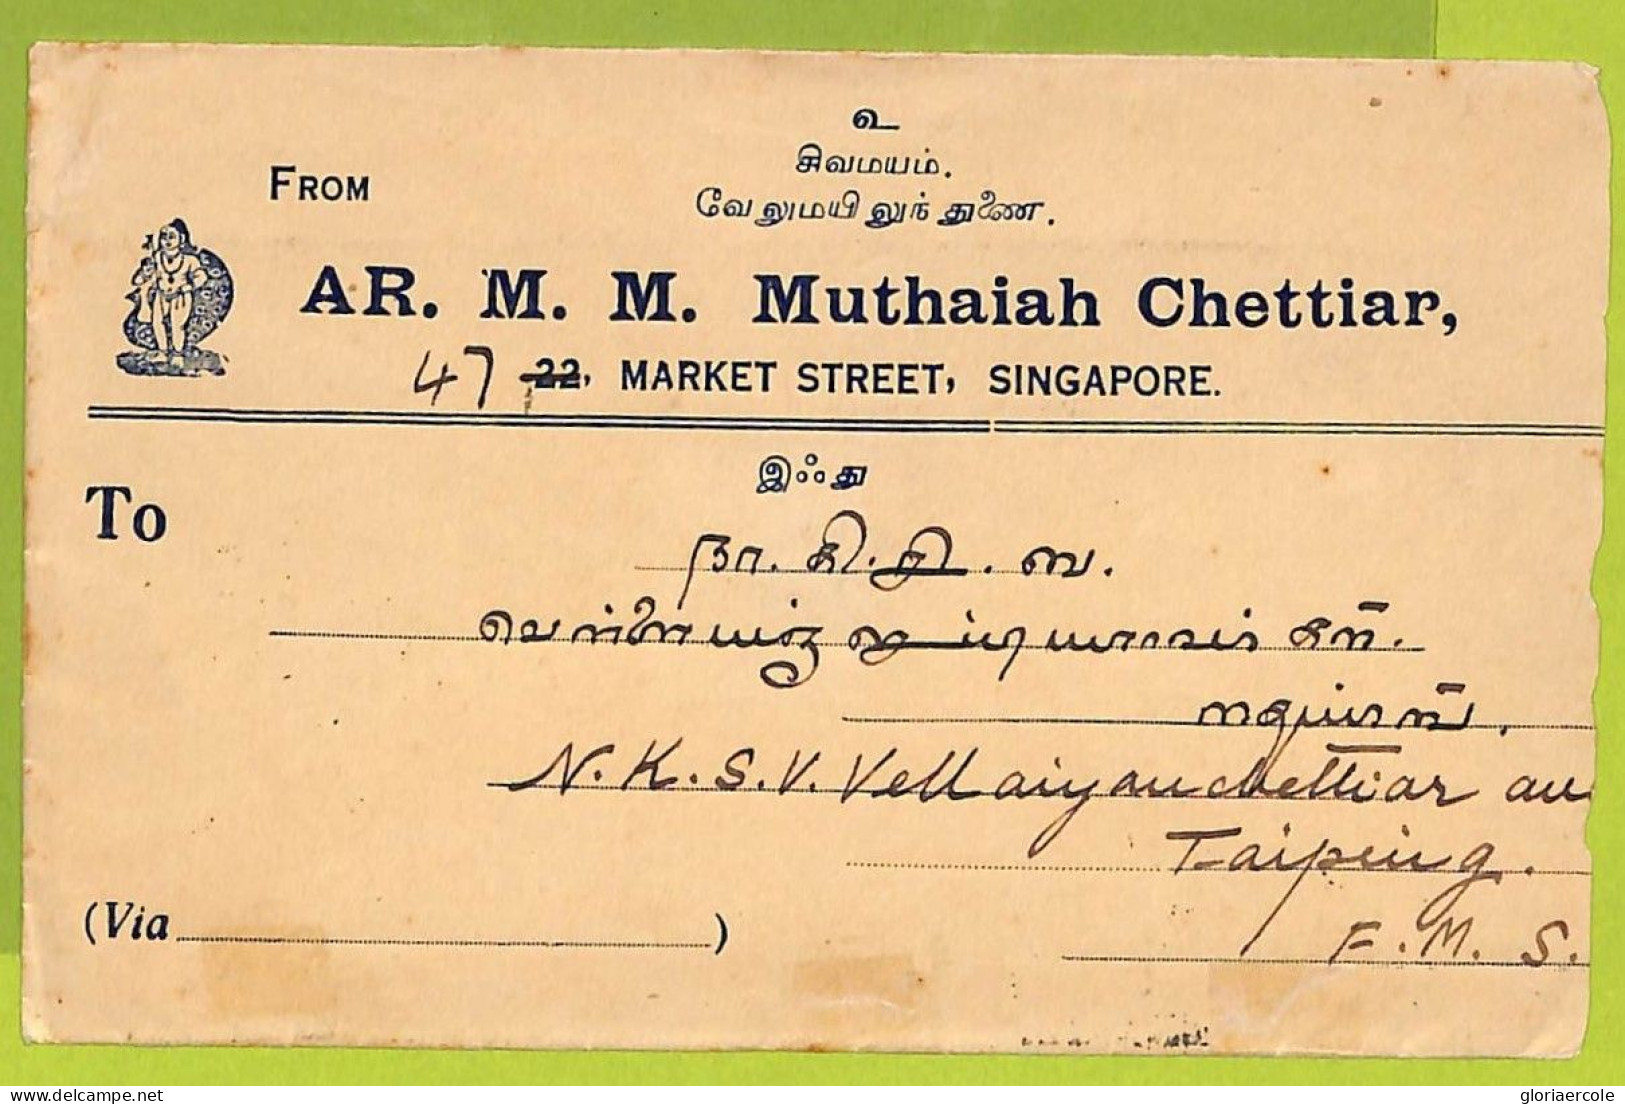 உ
சிவமயம்.
வேலுமயிலுந் துணை.
FROM
AR. M. M. Muthaiah Chettiar,
47 22, MARKET STREET, SINGAPORE.
இஃது
To
நா. கி. சி. வெ.
N. K. S. V. Vellaiyan chettiar
Taiping.
(Via )
F. M. S.
gloriaercole